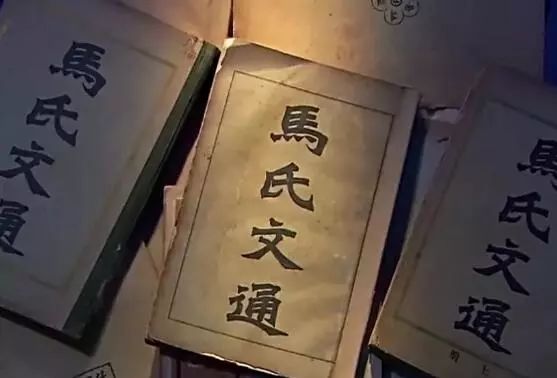 馬氏文通
馬氏文通
馬氏文通
上册